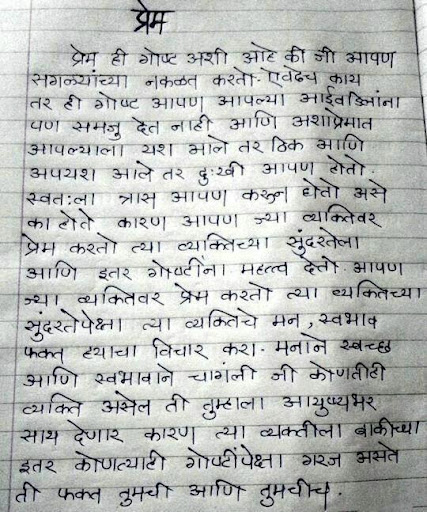 प्रेम
प्रेम ही गोष्ट अशी आहे की जी आपण
सगळ्यांच्या नकळत करतो. ऐवढेच काय
तर ही गोष्ट आपण आपल्या आईवडिलांना
पण समजु देत नाही आणि अशाप्रेमात
आपल्याला यश आले तर ठिक आणि
अपयश आले तर दुःखी आपण होतो.
स्वतःला त्रास आपण करून घेतो असे
का होते कारण आपण ज्या व्यक्तिवर
प्रेम करतो त्या व्यक्तिच्या सुंदरतेला
आणि इतर गोष्टींना महत्त्व देतो. आपण
ज्या व्यक्तिवर प्रेम करतो त्या व्यक्तिच्या
सुंदरतेपेक्षा त्या व्यक्तिचे मन, स्वभाव
फक्त ह्याचा विचार करा. मनाने स्वच्छ
आणि स्वभावाने चागंली जी कोणतीही
व्यक्ति असेल ती तुम्हाला आयुष्यभर
साथ देणार कारण त्या व्यक्तीला बाकीच्या
इतर कोणत्याही गोष्टींपेक्षा गरज असते
ती फक्त तुमची आणि तुमचीच.